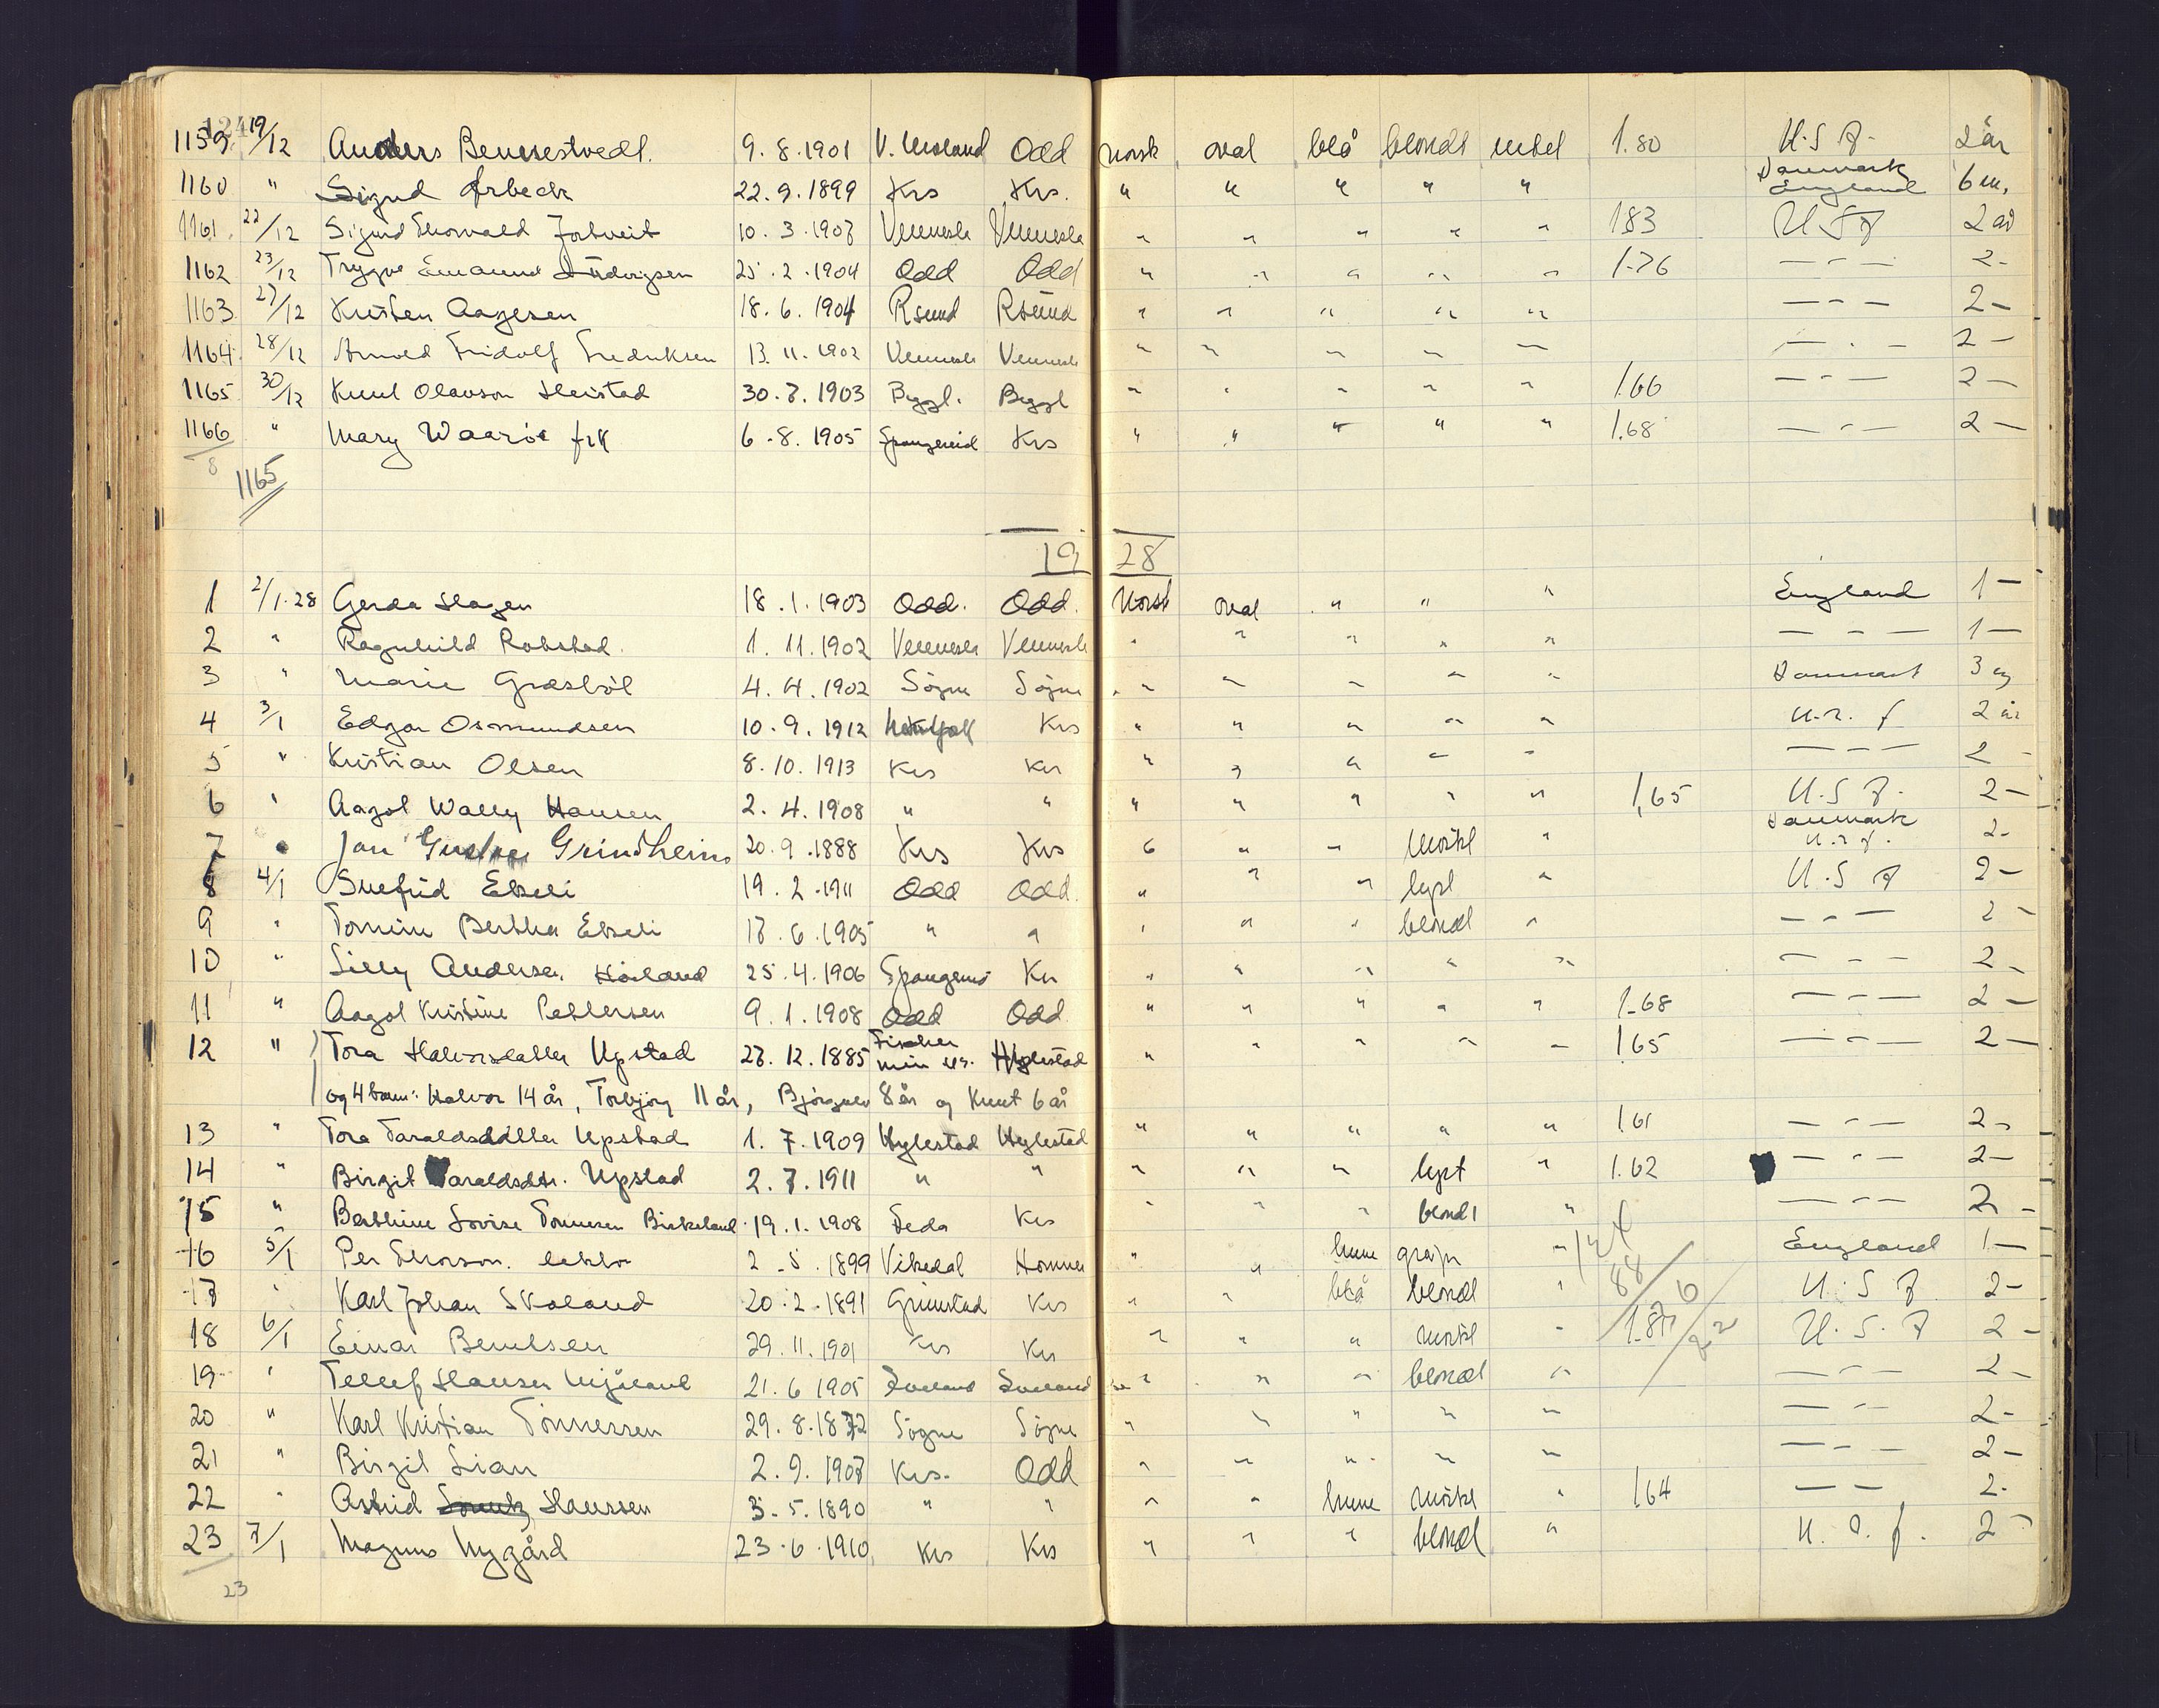 124
1159 19/12 Anders Bennestvedt. 9.8.1901 V. Moland Odd norsk oval blå blondt 1.80 U.S.A. 2 år
1160 " Sigurd Arbeck 22.9.1899 Krs Krs. " " " " " Danmark England 6 m.
1161 22/12 Sigurd Thorvald Jortveit 10.3.1907 Vennesla Vennesla " " " " " 183 USA 2 år
1162 23/12 Trygve Emanuel Ludvigsen 25.2.1904 Odd Odd " " " " " 1.76 — - — 2 -
1163 27/12 Kristen Aagesen 18.6.1904 Rsund Rsund " " " " " — - — 2 -
1164 28/12 Arnold Fridolf Fredriksen 13.11.1902 Vennesla Vennesla " " " " " — - — 2 -
1165 30/12 Knut Olavson Heistad 30.7.1903 Bygl. Bygl " " " " " 1.66 — - — 2 -
1166 " Mary Waarøe frk 6.8.1905 Spangereid Krs " " " " " 1.68 — - — 2 -
8
1165
19 28
1 2/1.28 Gerda Hagen 18.1.1903 Odd. Odd. Norsk oval " " " England 1 -
2 " Ragnhild Robstad 1.11.1902 Vennesla Vennesla " " " " " — - — 1 -
3 " Marie Græsbøl 4.4.1902 Søgne Søgne " " " " " Danmark 3
4 3/1 Edgar Osmundsen 10.9.1912 Krs " " " " " 2 år
5 " Kristian Olsen 8.10.1913 Krs Krs " " " " " — - — 2 -
6 " Aagot Wally Hansen 2.4.1908 " " " " " " " 1,65 U.S.A. 2 -
7 " Jan Gustav Grindheim 20.9.1888 Krs Krs " " " mørkt " Danmark 2 -
8 4/1 Snefrid Ekeli 19.2.1911 Odd Odd " " " lyst " U.S.A 2 -
9 " Tomine Berthea Ekeli 17.6.1905 " " " " " blondt " — - — 2 -
10 " Lilly Andersen Høiland 25.4.1906 Spangereid Krs " " " " " — - — 2 -
11 " Aagot Kristine Pettersen 9.1.1908 Odd Odd " " " " " 1.68 — - — 2 -
12 " Tora Halvorsdatter Upstad 27.12.1885 Fischer Hylestad " " " " " 165 — - — 2 -
og 4 barn: Halvor 14 år, Torbjörg 11 år, Bjørgulv 8 år og Knut 6 år
13 " Tora Taraldsdatter Upstad 1.7.1909 Hylestad Hylestad " " " " " 1.61 — - — 2 -
14 " Birgit Taraldsdtr. Upstad 2.7.1911 " " " " " lyst " 1.62 — - — 2 -
15 " Berthine Lovise Tonnesen Birkeland 19.1.1908 Feda Krs " " " blondt " — - — 2 -
16 5/1 Per Thorson. lektor 2.5.1899 Vikedal Homme " " brune " England 1 -
17 " Karl Johan Skaland 20.2.1891 Grimstad Krs " " blå blondt " U.S.A 2 -
18 6/1 Einar Berntsen 29.11.1901 Krs Krs " " " mørkt " U.S.A 2 -
19 " Tellef Hansen Mjåland 21.6.1905 Iveland Iveland " " " blondt " — - — 2 -
20 " Karl Kristian Tönnessen 29.8.1872 Søgne Søgne " " " " " — - — 2 -
21 " Birgit Lian 2.9.1907 Krs. Odd " " " " " — - — 2 -
22 " Astrid Hanssen 3.5.1890 " " " " brune mørkt " 1.64 — — 2 -
23 7/1 Magnus Nygård 23.6.1910 Krs Krs " " " blondt " 2 -
23